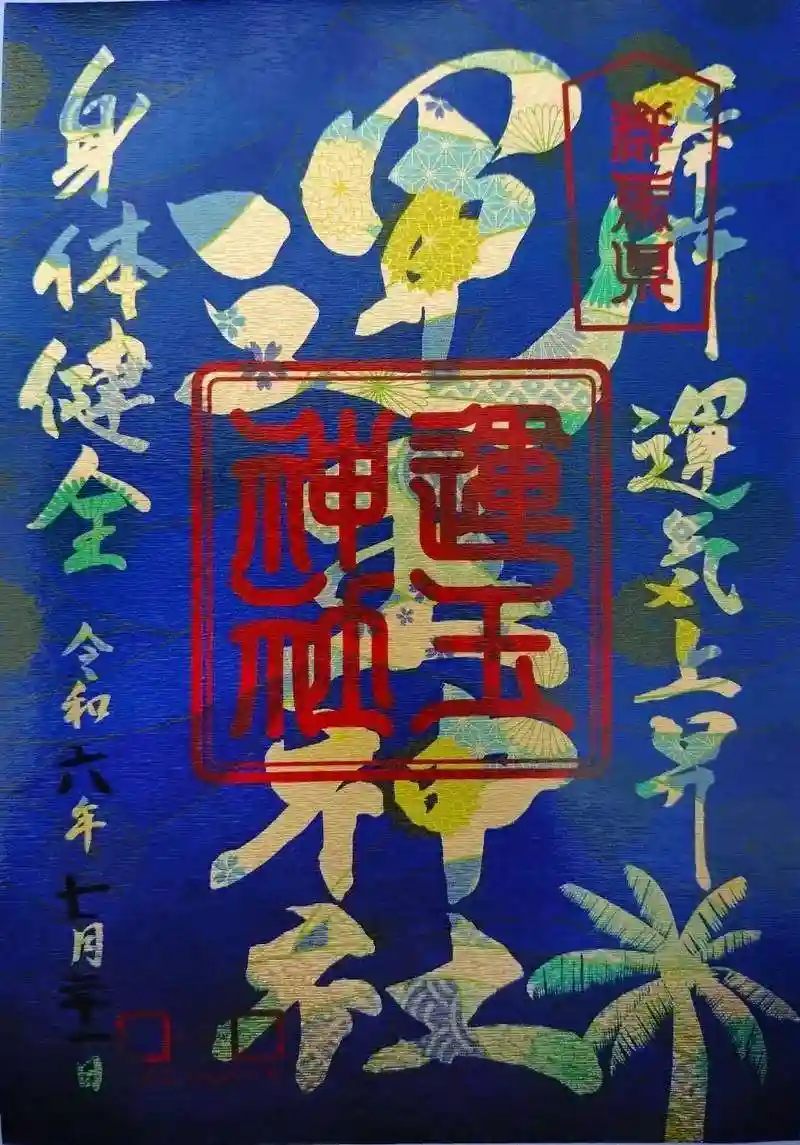 奉拝
群馬県
運気上昇
運玉神社
運玉
神社
身体健全
令和六年七月二十一日